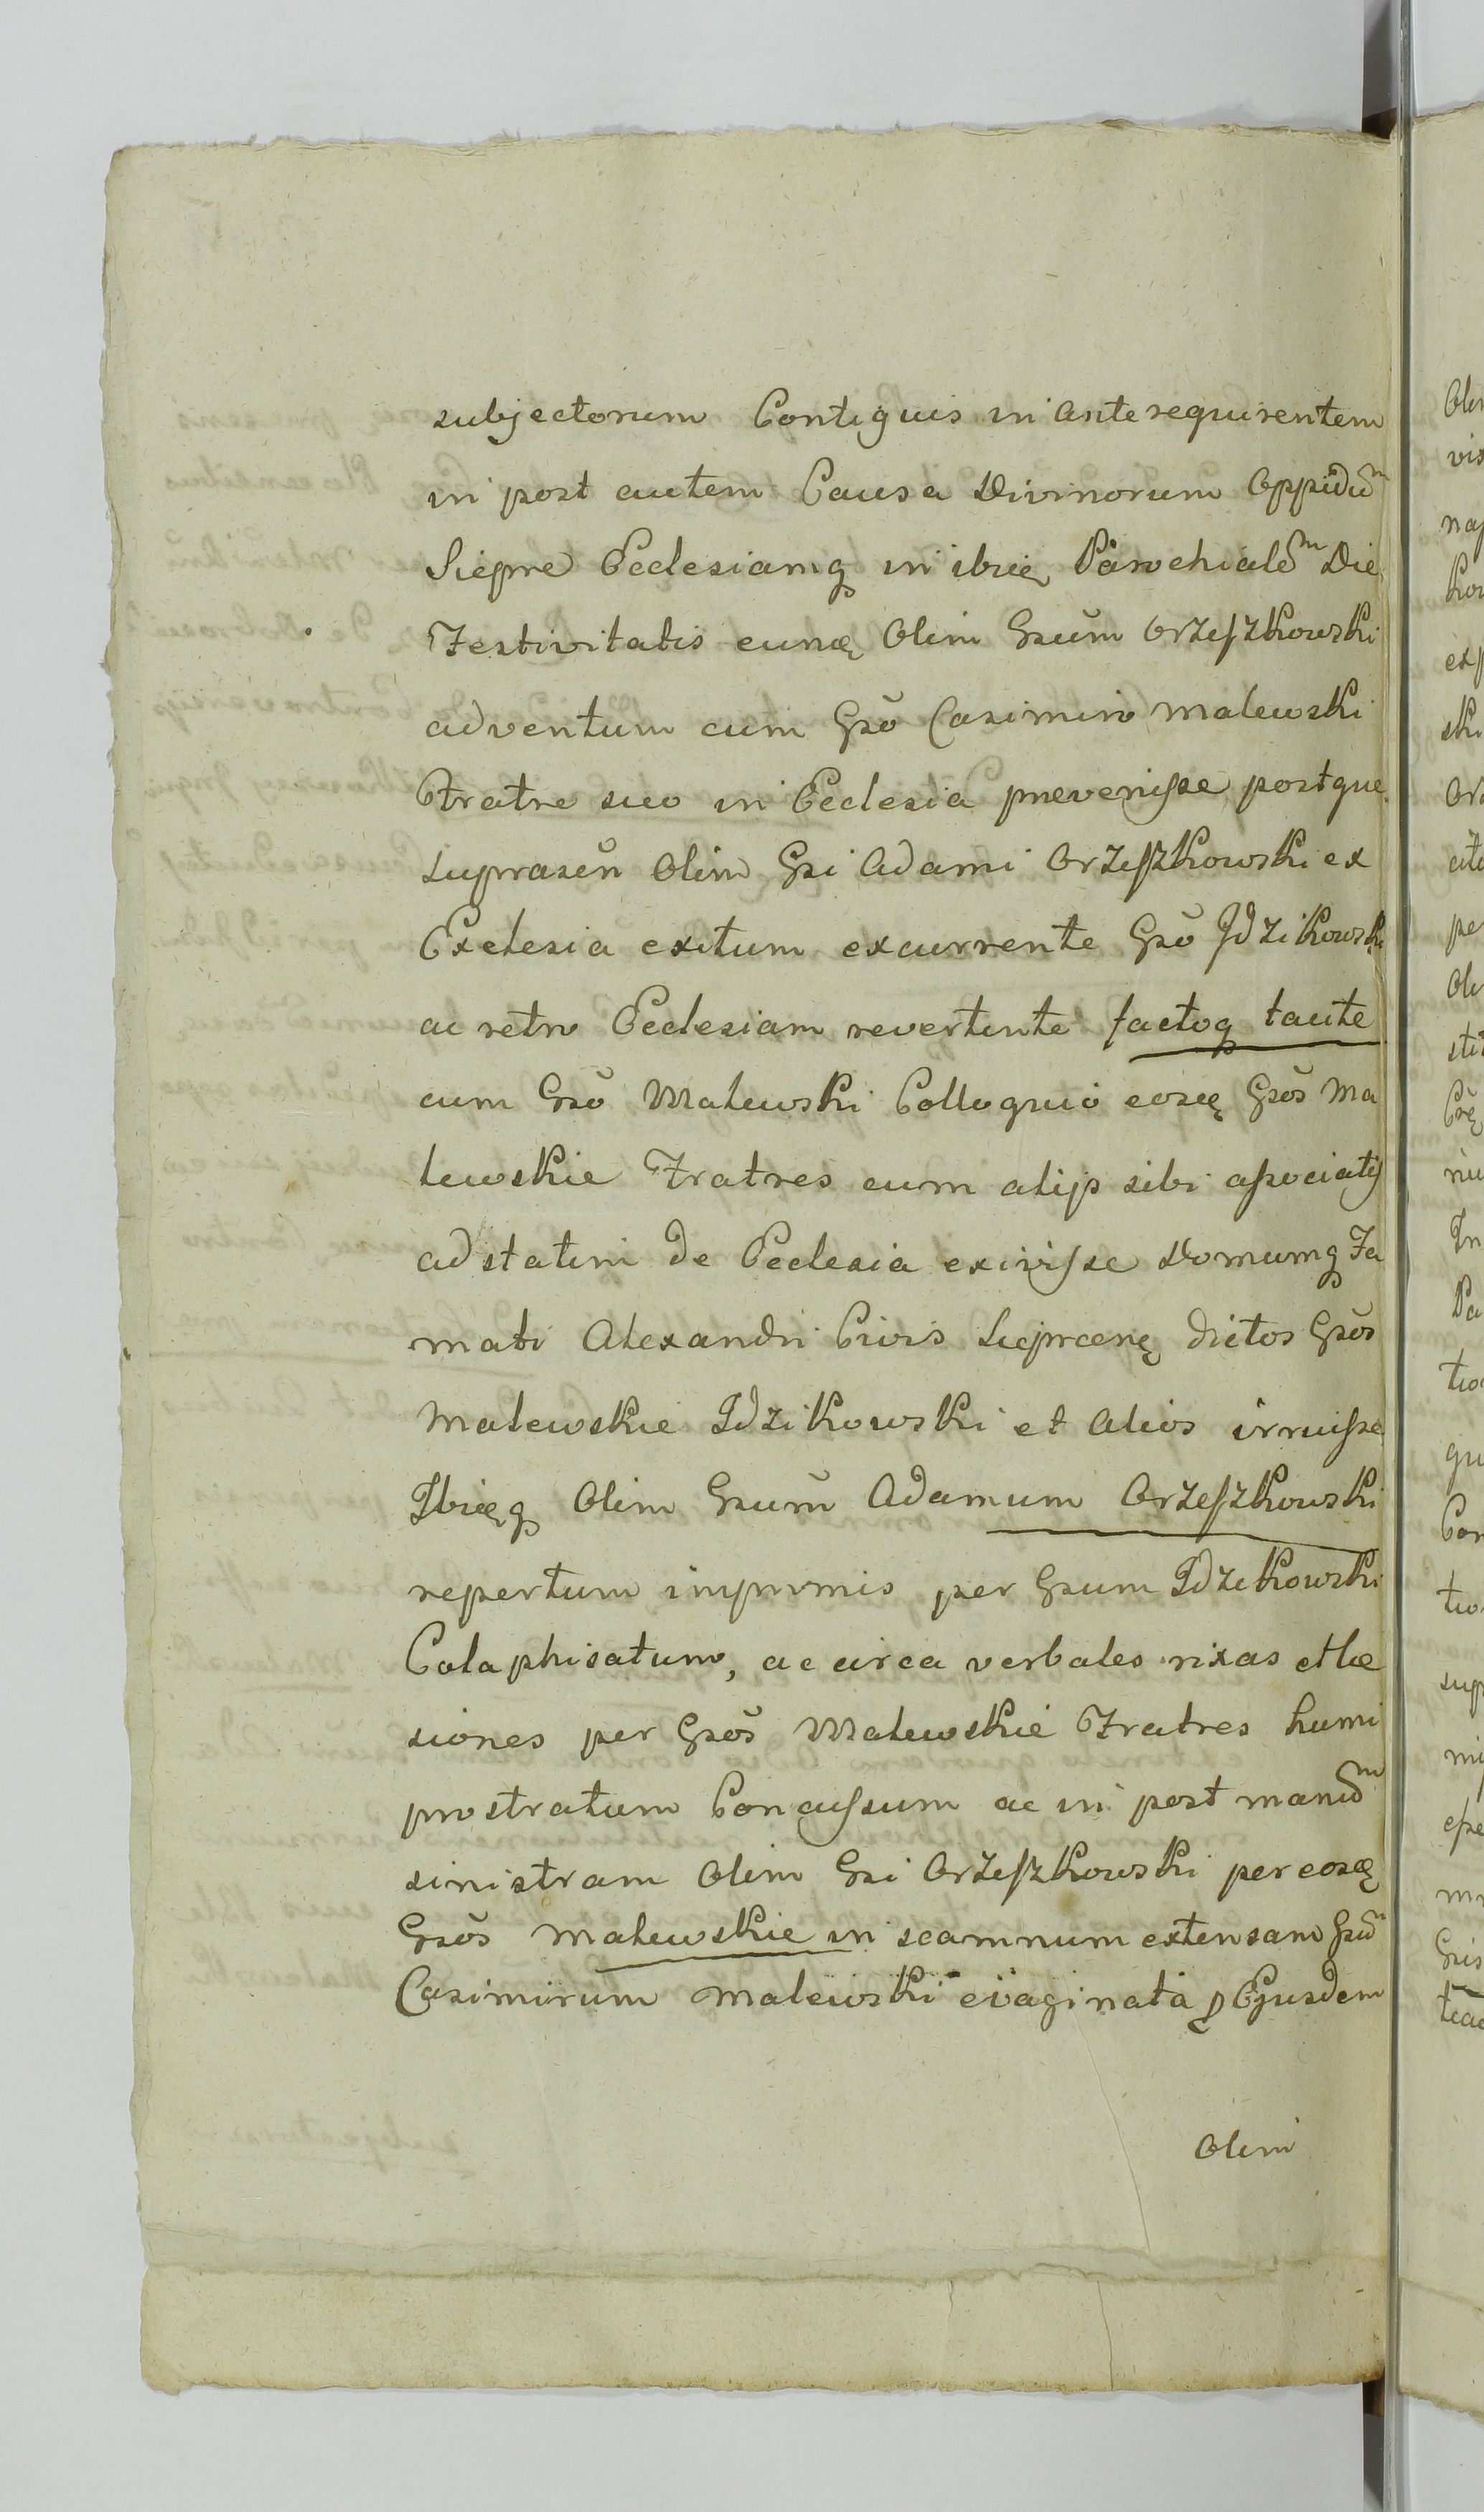 subjectorum Contiguis in anterequirentem
in post autem Causa Divinorum Oppidu͠m
Siepre Ecclesiamqꝫ in ibię Parochiale͠m Die
Festivitatis eunę Olim Gsum̃ Orzeſzkowski
adventum cum Gsõ Casimiro Malewski
Fratre suo in Ecclesia preveniſse postque
suprascñ Olim Gsi Adami Orzeſzkowski ex
Exclesia exitum excurrente Gsõ Jdzikowski
ac retro Ecclesiam revertente factoqꝫ tacite
cum Gsõ Malewski Colloquio eosę Gsõs Ma
lewskie Fratres cum alijs sibi aſsociatij
adstatim de Ecclesia exiviſse Domumqꝫ Fa
mati Alexandri Civis Sieprcenę dictos Gsõs
Malewskie Jdzikowski et Alios irruiſse
Ibięqꝫ Olim Gsum̃ Adamum Orzeſzkowski
repertum imprimis per Gsum Jdzikowski
Colaphisatum, ac circa verbales rixas et læ
siones per Gsõs Malewskie Fratres humi
prostratum Concuſsum ac in post manu͠m
sinistram Olim Gsi Orzeſzkowski per eosę
Gsõs Malewskie in scamnum extensam Gsu͠m
Casimirum Malewski evaginata ꝑ Ejusdem
Olim
Olim
vis